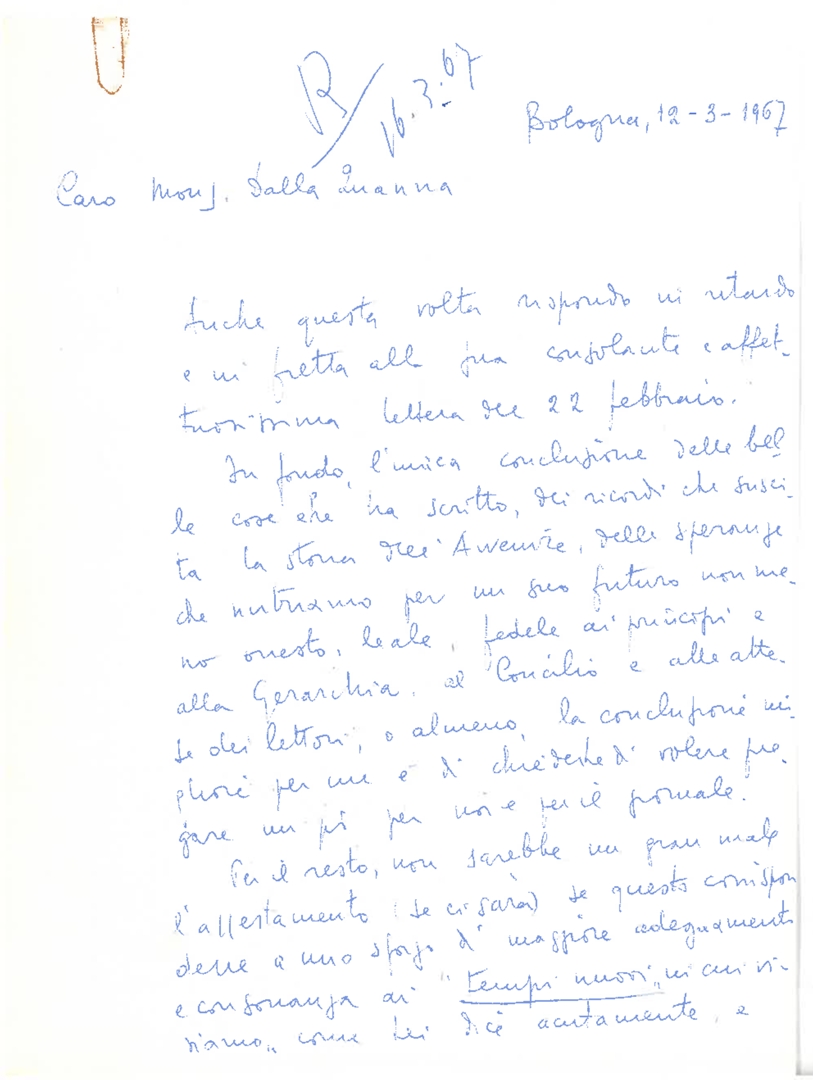 R/ 16.3.67
Bologna, 12-3-1967
Caro Mons. Dalla Zuanna
Anche questa volta rispondo in ritardo
e in fretta alla sua consolante e affet-
tuosissima lettera del 22 febbraio.
In fondo, l'unica conclusione delle bel-
le cose che ha scritto, dei ricordi che susci-
ta la storia dell'Avvenire, delle speranze
che nutriamo per un suo futuro non me-
no onesto, leale, fedele ai principi e
alla Gerarchia, al Concilio e alle atte-
se dei lettori, o almeno, la conclusione mi-
gliore per me è di chiederle di volere pre-
gare un pò per noi e per il giornale.
Per il resto, non sarebbe un gran male
l'assestamento (se ci sarà) se questo corrispon
desse a uno sforzo di maggiore adeguamento
e consonanza ai "tempi nuovi" in cui vi-
viamo", come Lei dice acutamente, e